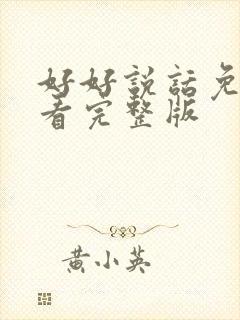 好好説話免
看完整版
黄小英